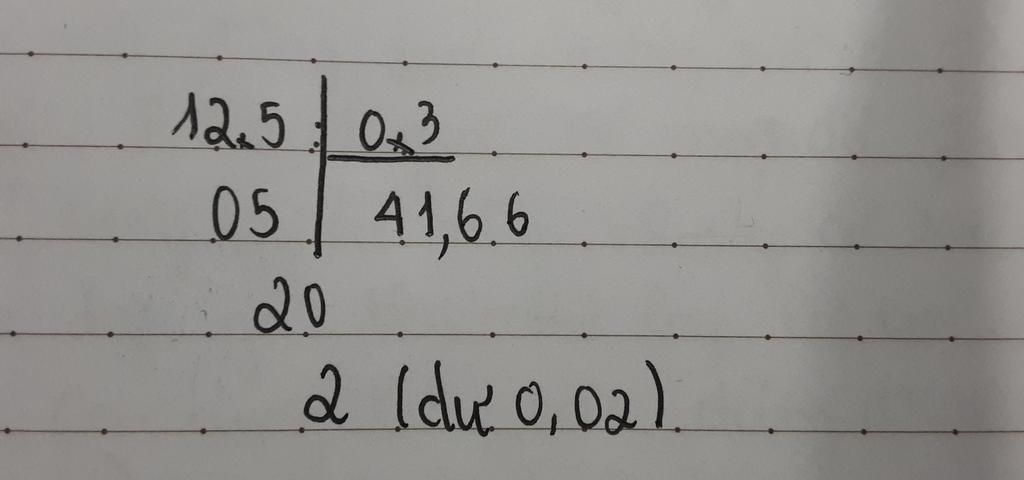 12,5 : 0,3
05 41,66
20
2 (dư 0,02)